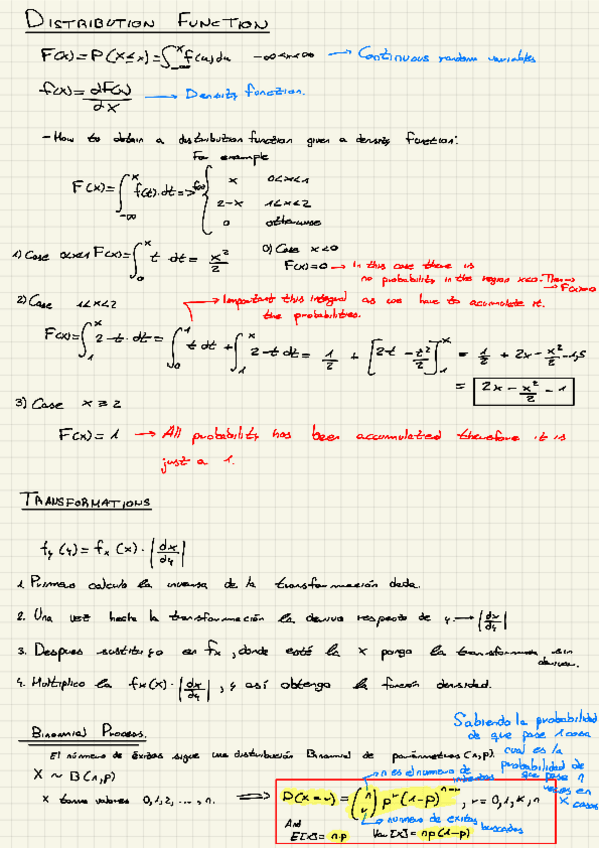 DISTRIBUTION FUNCTION
F(x) = P(X ≤ x) = ∫_{-∞}^{x} f(u) du   -∞<x<∞ → Continuous random variables
f(x) = dF(x)/dx → Density function.
- How to obtain a distribution function given a density function:
For example
F(x) = ∫_{-∞}^{x} f(t)·dt => f(x) { x   0<x<1
2-x   1<x<2
0   otherwise
1) Case 0<x<1 F(x) = ∫_{0}^{x} t dt = x²/2
0) Case x<0
F(x)=0 → In this case there is
no probability in the region x<0. Then →
→ F(x)=0
2) Case 1<x<2
→ Important this integral as we have to acumulate it.
the probabilities.
F(x) = ∫_{1}^{x} 2-t·dt = ∫_{0}^{1} t dt + ∫_{1}^{x} 2-t dt = 1/2 + [2t - t²/2]_{1}^{x} = 1/2 + 2x - x²/2 - 1,5
= 2x - x²/2 - 1
3) Case x ≥ 2
F(x) = 1 → All probability has been accumulated therefore it is
just a 1.
TRANSFORMATIONS
f_y(y) = f_x(x) · |dx/dy|
1. Primero calculo la inversa de la transformación dada.
2. Una vez hecha la transformación la deriva respecto de y → |dx/dy|
3. Despues sustituyo en fx, donde esté la x pongo la transformada sin
derivar.
4. Multiplico la fx(x) · |dx/dy|, y así obtengo la función densidad.
BINOMIAL PROCESS.
El número de éxitos sigue una distribución Binomial de parámetros (n,p).
X ~ B(n,p)
X toma valores 0,1,2, ..., n.
Sabiendo la probabilidad
de que pase 1 cosa
cual es la
probabilidad de
que pase n
veces en
X cosas
→ n es el numero de
intentos
=> P(X=r) = (n r) p^r (1-p)^{n-r}, r = 0,1,..., n
→ numero de exitos
buscados
And
E[X] = n·p   Var[X] = np(1-p)